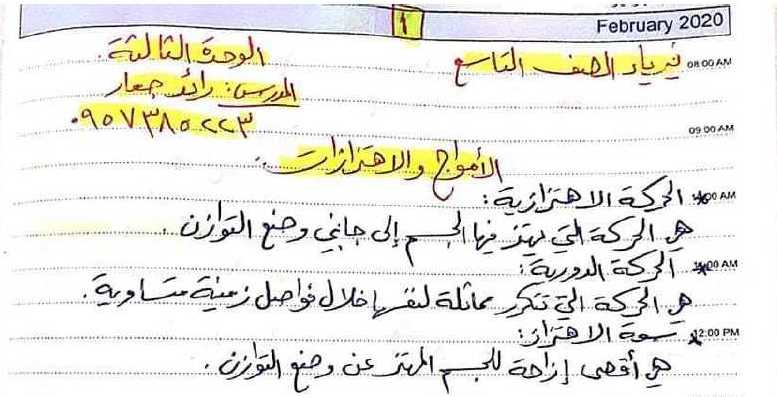 ١
February 2020
فيزياء الصف التاسع
الوحدة الثالثة.
08:00 AM
المدرس: رائد جعار
٠٩٥٧٣٨٥٢٢٣
09:00 AM
الأمواج والاهتزازات
* الحركة الاهتزازية:
:00 AM
هي الحركة التي يهتز فيها الجسم إلى جانبي وضع التوازن.
* الحركة الدورية:
:00 AM
هي الحركة التي تتكرر مماثلة لنفسها خلال فواصل زمنية متساوية.
* سعة الاهتزاز:
12:00 PM
هي أقصى إزاحة للجسم المهتز عن وضع التوازن.